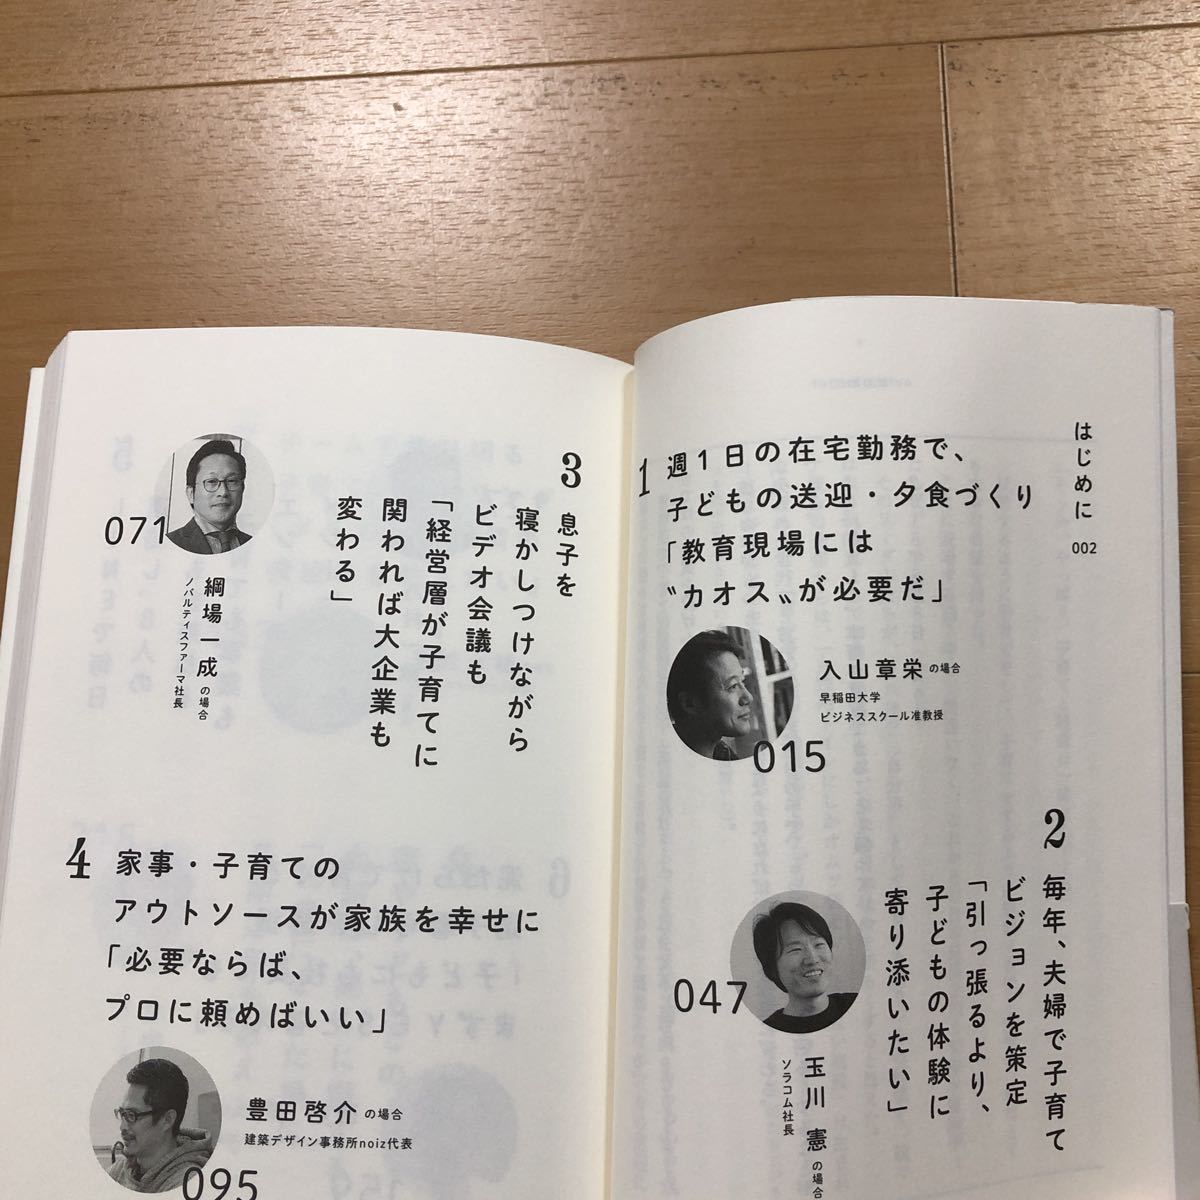 はじめに
002
1
週1日の在宅勤務で、
子どもの送迎・夕食づくり
「教育現場には
〝カオス〟が必要だ」
入山章栄の場合
早稲田大学
ビジネススクール准教授
015
2
毎年、夫婦で子育て
ビジョンを策定
「引っ張るより、
子どもの体験に
寄り添いたい」
玉川 憲の場合
ソラコム社長
047
3
息子を
寝かしつけながら
ビデオ会議も
「経営層が子育てに
関われば大企業も
変わる」
綱場一成の場合
ノバルティスファーマ社長
071
4
家事・子育ての
アウトソースが家族を幸せに
「必要ならば、
プロに頼めばいい」
豊田啓介の場合
建築デザイン事務所noiz代表
095